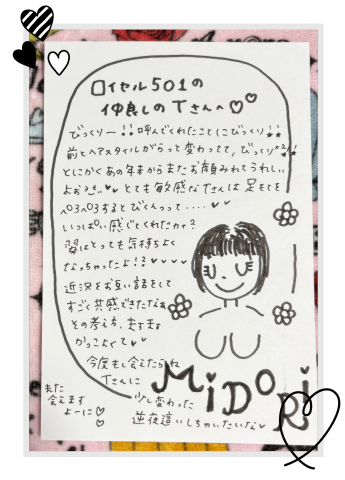 ロイヤル501の
仲良しのTさんへ♡♡
びっくりー!!呼んでくれたことにびっくり!!
前とヘアスタイルがらっと変わってて、びっくり!!
とにかくあの年末からまたお顔みれてうれしい
よぉ♥♥とても敏感なTさんは足もとを
ペロペロするとびくんって....♥♥
いっぱい感じてくれたカナ?
翠はとっても気持ちよく
なっちゃったよ!?♥♥♥♥
近況をお互い話をして
すごく共感できたなぁ
その考え方、ますます
かっこよくて♥♥
今度もし会えたられ
Tさんに
少し変わった
逆夜這いしちゃいたいな♥
MiDORi
また
会えます
よーに♡♡